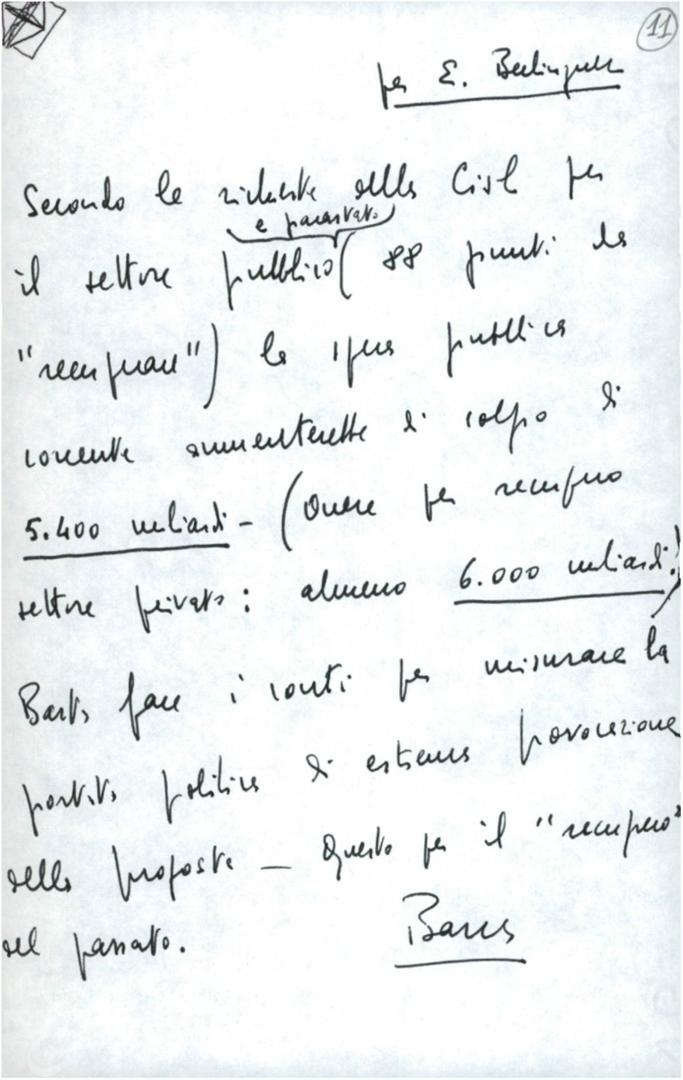 11
per E. Berlinguer
Secondo le richieste della Cisl per
e parastato
il settore pubblico ( 88 punti da
"recuperare") la spesa pubblica
corrente aumenterebbe di colpo di
5.400 miliardi - (Onere per recupero
settore privato: almeno 6.000 miliardi!)
Basta fare i conti per misurare la
portata politica di estrema provocazione
della proposta - Questo per il "recupero"
del passato.
Barca